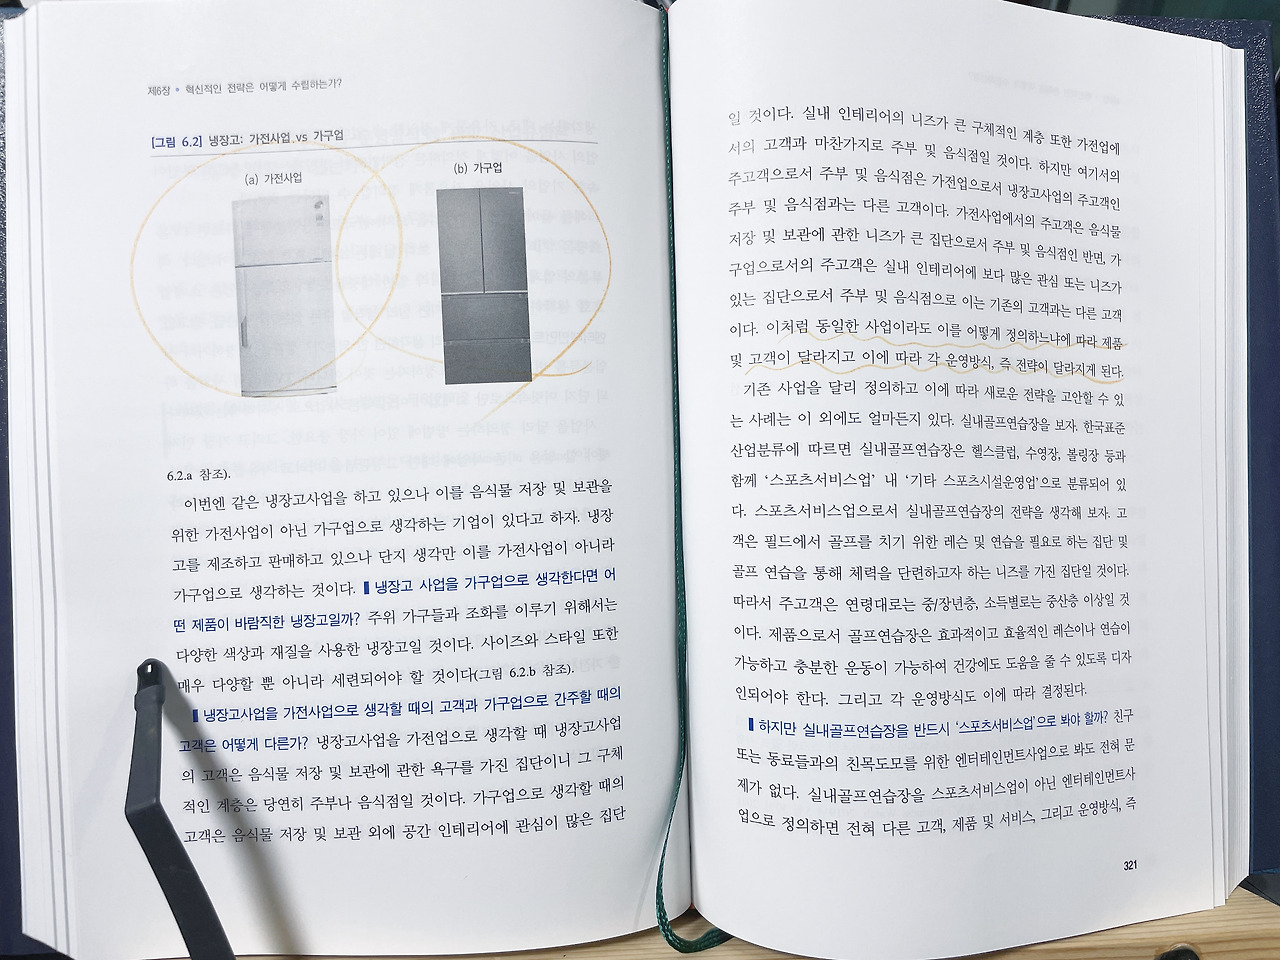 제6장 • 혁신적인 전략은 어떻게 수립하는가?
[그림 6.2] 냉장고: 가전사업 vs 가구업
(a) 가전사업
(b) 가구업
6.2.a 참조).
이번엔 같은 냉장고사업을 하고 있으나 이를 음식물 저장 및 보관을
위한 가전사업이 아닌 가구업으로 생각하는 기업이 있다고 하자. 냉장
고를 제조하고 판매하고 있으나 단지 생각만 이를 가전사업이 아니라
가구업으로 생각하는 것이다. ▌냉장고 사업을 가구업으로 생각한다면 어
떤 제품이 바람직한 냉장고일까? 주위 가구들과 조화를 이루기 위해서는
다양한 색상과 재질을 사용한 냉장고일 것이다. 사이즈와 스타일 또한
매우 다양할 뿐 아니라 세련되어야 할 것이다(그림 6.2.b 참조).
▌냉장고사업을 가전사업으로 생각할 때의 고객과 가구업으로 간주할 때의
고객은 어떻게 다른가? 냉장고사업을 가전업으로 생각할 때 냉장고사업
의 고객은 음식물 저장 및 보관에 관한 욕구를 가진 집단이니 그 구체
적인 계층은 당연히 주부나 음식점일 것이다. 가구업으로 생각할 때의
고객은 음식물 저장 및 보관 외에 공간 인테리어에 관심이 많은 집단
일 것이다. 실내 인테리어의 니즈가 큰 구체적인 계층 또한 가전업에
서의 고객과 마찬가지로 주부 및 음식점일 것이다. 하지만 여기서의
주고객으로서 주부 및 음식점은 가전업으로서 냉장고사업의 주고객인
주부 및 음식점과는 다른 고객이다. 가전사업에서의 주고객은 음식물
저장 및 보관에 관한 니즈가 큰 집단으로서 주부 및 음식점인 반면, 가
구업으로서의 주고객은 실내 인테리어에 보다 많은 관심 또는 니즈가
있는 집단으로서 주부 및 음식점으로 이는 기존의 고객과는 다른 고객
이다. 이처럼 동일한 사업이라도 이를 어떻게 정의하느냐에 따라 제품
및 고객이 달라지고 이에 따라 각 운영방식, 즉 전략이 달라지게 된다.
기존 사업을 달리 정의하고 이에 따라 새로운 전략을 고안할 수 있
는 사례는 이 외에도 얼마든지 있다. 실내골프연습장을 보자. 한국표준
산업분류에 따르면 실내골프연습장은 헬스클럽, 수영장, 볼링장 등과
함께 ‘스포츠서비스업’ 내 ‘기타 스포츠시설운영업’으로 분류되어 있
다. 스포츠서비스업으로서 실내골프연습장의 전략을 생각해 보자. 고
객은 필드에서 골프를 치기 위한 레슨 및 연습을 필요로 하는 집단 및
골프 연습을 통해 체력을 단련하고자 하는 니즈를 가진 집단일 것이다.
따라서 주고객은 연령대로는 중/장년층, 소득별로는 중산층 이상일 것
이다. 제품으로서 골프연습장은 효과적이고 효율적인 레슨이나 연습이
가능하고 충분한 운동이 가능하여 건강에도 도움을 줄 수 있도록 디자
인되어야 한다. 그리고 각 운영방식도 이에 따라 결정된다.
▌하지만 실내골프연습장을 반드시 ‘스포츠서비스업’으로 봐야 할까? 친구
또는 동료들과의 친목도모를 위한 엔터테인먼트사업으로 봐도 전혀 문
제가 없다. 실내골프연습장을 스포츠서비스업이 아닌 엔터테인먼트사
업으로 정의하면 전혀 다른 고객, 제품 및 서비스, 그리고 운영방식, 즉
321